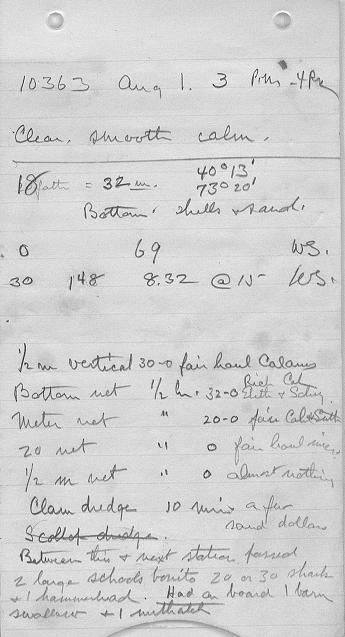 10363 Aug 1. 3 Pm - 4 Pm
Clear. smooth calm.
18 fath = 32 m. 40°13'
73°20'
Bottom. shells & sand.
0 69 WS.
30 148 8.32 @ 15 WS.
1/2 m vertical 30-0 fair haul Calanus
Bottom net 1/2 hr. 32-0 Rich Cal
Meter net " 20-0 fair Cal &
20 net " 0 fair haul
1/2 m net " 0 almost nothing
Clam dredge 10 mins a few
sand dollars
Scallop dredge.
Between this & next station passed
2 large schools bonito 20 or 30 sharks
& 1 hammerhead. Had on board 1 barn
swallow & 1 nuthatch